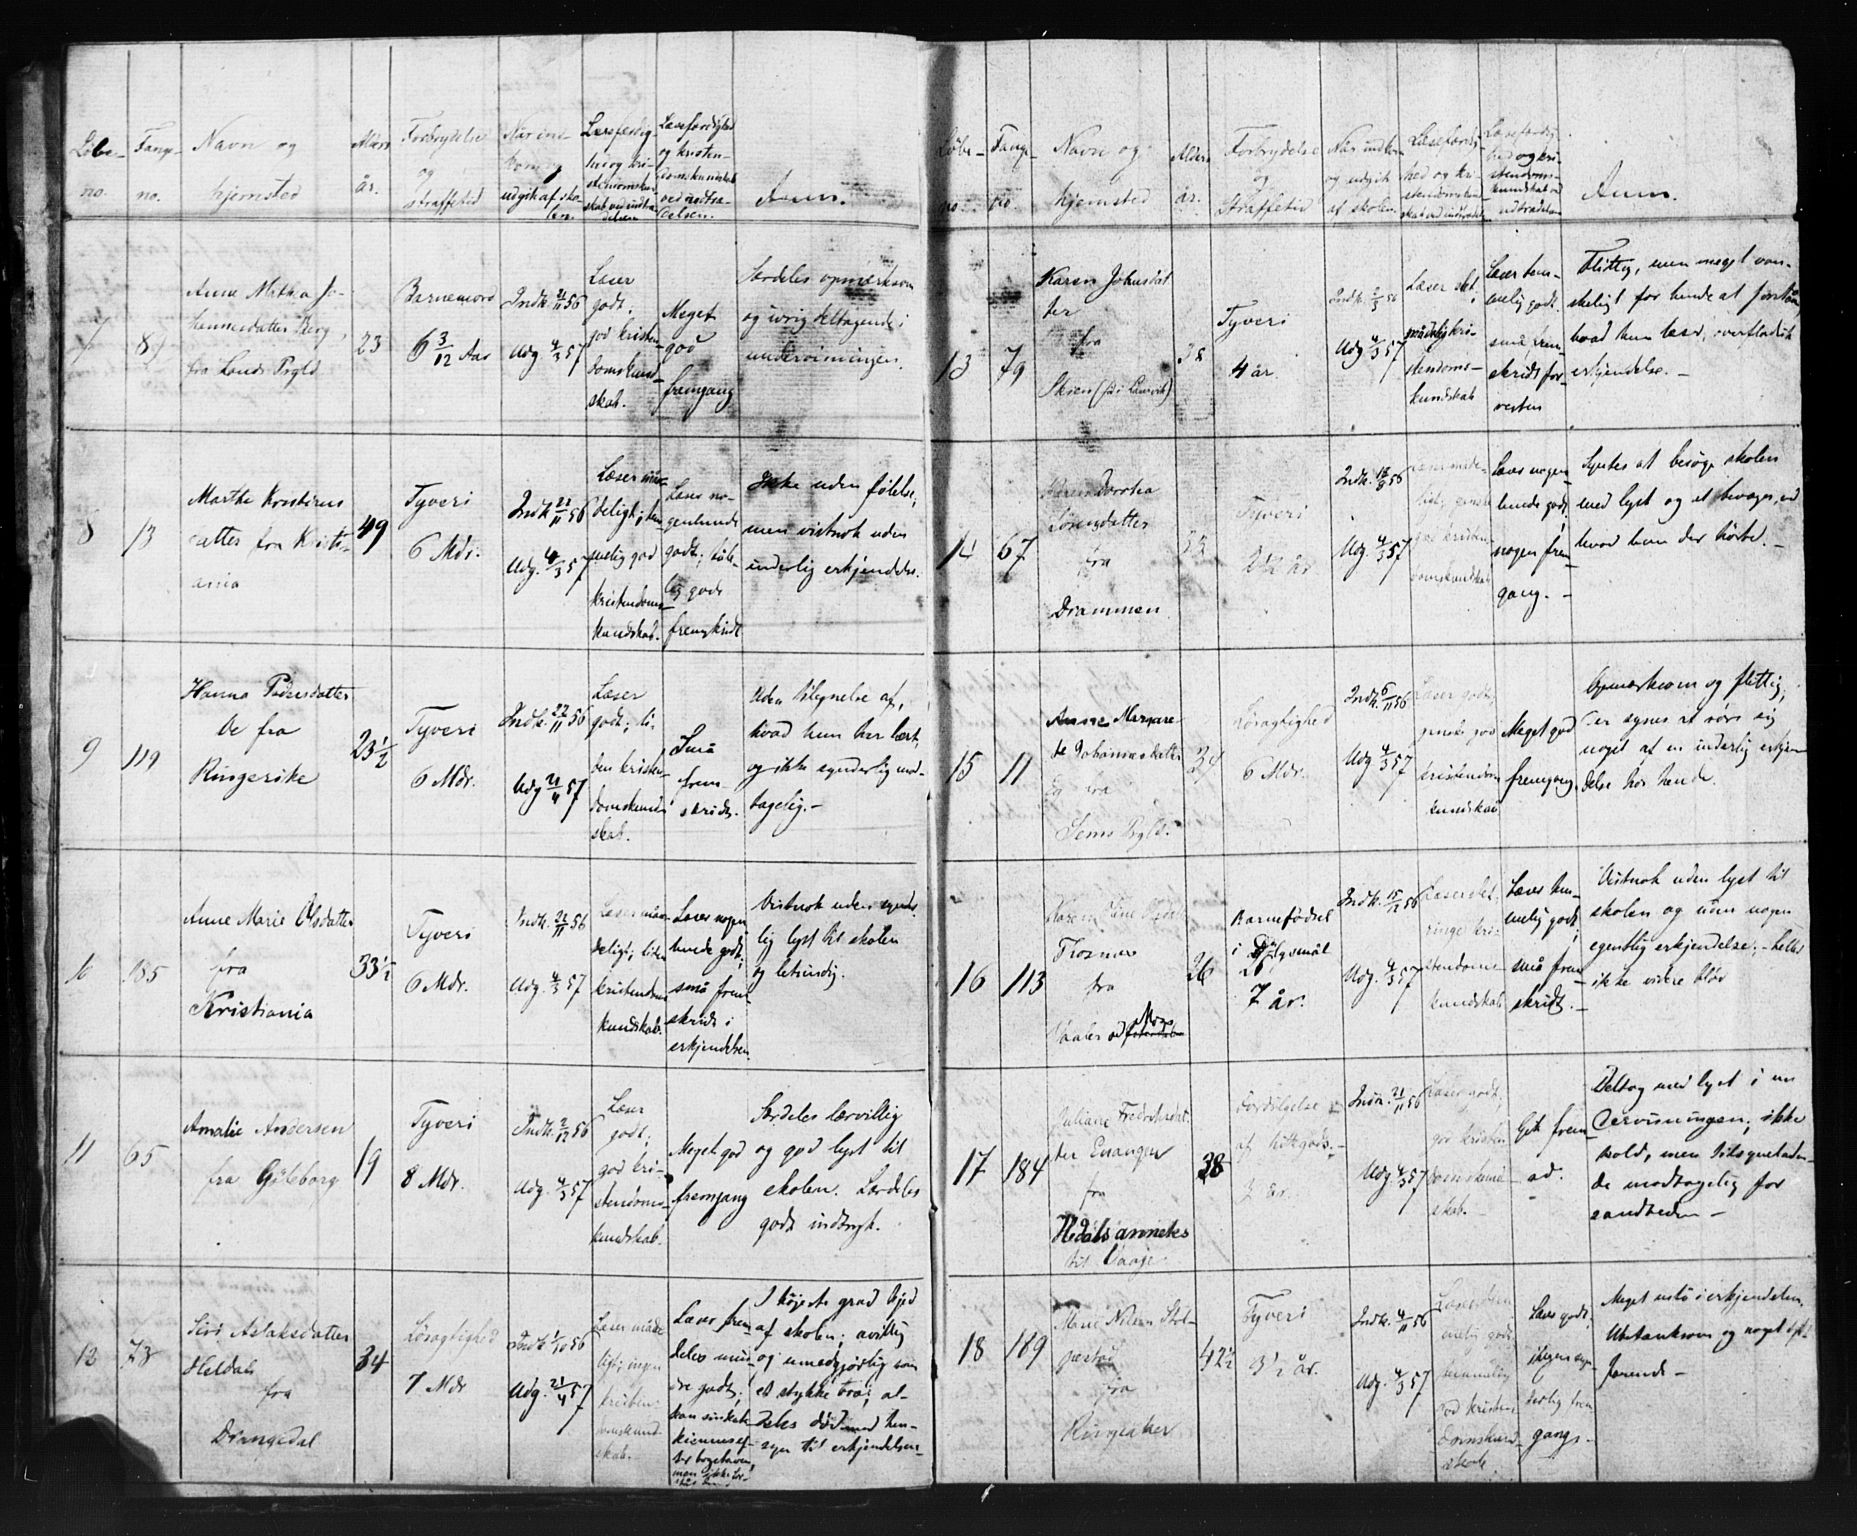 Løbe-
no.
Fange-
no.
Navn og
hjemsted
Alder
år.
Forbrydelse
og
straffetid
Når ind-
kom og
udgik af sko-
len
Læsefærdig-
hed og kri-
stendomskun-
skab ved indtræ-
delsen
Læsefærdighed
og kristen-
domskundskab
ved udtræ-
delsen.
Anm.
7
Anne Mathea Jo-
hannesdatter Berg
fra Lands Prgld
23
Barnemord
6 3/12 Aar
Indk. 21/11 56
Udg. 4/3 57
Læser
godt;
god kristen-
domskund-
skab.
Meget
god
fremgang
Særdeles opmærksom
og ivrig deltagende i
undervisningen.
8
13
Marthe Kristens
datter fra Kristi-
ania
49
Tyveri
6 Mdr.
Indk. 21/11 56
Udg. 4/3 57
Læser må-
deligt; tem-
melig god
kristendoms-
kundskab.
Læser no-
genlunde
godt;
godt
fremskridt
Ikke uden følelse,
men vistnok uden
inderlig erkjendelse.
9
119
Hanna Pedersdatter
Oe fra
Ringerike
23½
Tyveri
6 Mdr.
Indk. 22/11 56
Udg. 21/4 57
Læser
godt; li-
den kristen-
domskund-
skab.
Små
frem-
skridt.
Uden tilegnelse af,
hvad hun har lært,
og ikke synderlig mod-
tagelig.-
10
185
Anne Marie Olsdatter
fra
Kristiania
33½
Tyveri
6 Mdr.
Indk. 22/11 56
Udg. 4/3 57
Læser må-
deligt; liten
kristendoms
kundskab.
Læser nogen
lunde godt;
små frem-
skridt i
erkjendelsen.
Vistnok uden synder-
lig lyst til skolen
og letsindig.
11
65
Amalie Andersen
fra Göteborg
19
Tyveri
8 Mdr.
Indk. 2/12 56
Udg. 4/3 57
Læser
godt;
god kri-
stendoms-
kundskab.
Meget god
fremgang
Særdeles lærvillig
og god lyst til
skolen. Særdeles
godt indtryk.
12
73
Siri Aslaksdatter
Heldal
fra
Drangedal
34
Løsagtighed
7 Mdr
Indk. 1/10 56
Udg. 21/4 57
Læser måde
ligt; ingen
kristen-
domskund
skab.
Læser frem
deles min-
dre godt;
kan
ter bogstaven,
men ikke for-
I højeste grad kjed
af skolen; uvillig
og umedgjørlig som
et stykke træ; al-
deles død med hen-
syn til erkjendelsen.
Løbe-
no.
Fange-
no.
Navn og
hjemsted
Alder
år.
Forbrydelse
og
Straffetid
Når indkom
og udgik
af skolen.
Læsefærdig-
hed og kri-
stendomskund-
skab ved indtrædelsen
Læsefærdig-
hed og kri-
stendoms-
kundskab ved
udtrædelsen
Anm.
13
79
Karen Johnsdat
ter
fra
Skien
38
Tyveri
4 år.
Indk. 56
Udg. 4/3 57
Læser slet;
mådelig kri-
stendoms-
kundskab
Læser tem-
melig godt.
små frem-
skridt for-
resten
Flittig, men meget van-
skeligt for hende at forstå,
hvad hun læser; overfladisk
erkjendelse.-
14
67
Karen Dorothea
Lorensdatter
fra
Drammen
33
Tyveri
2½ år.
Indk. 56
Udg. 4/3 57
god kristen
domskundskab
Læser nogen
lunde godt;
nogen frem-
gang.-
Syntes at besøge skolen
med lyst og at bevæges ved
hvad hun der hørte.-
15
11
Anne Margare-
te Johannesdatter
fra
Sems Prgld.
34
Løsagtighed
6 Mdr.
Indk. 6/11 56
Udg. 4/3 57
Læser godt;
ganske god
kristendoms
kundskab
Meget god
fremgang.
Opmærksom og flittig;
der synes at røre sig
noget af en inderlig erkjen
delse hos hende.
16
113
Thosnæs
fra
Vaaler ved Moss
26
Barnefødsel
i Dølgsmål
7 år.
Indk. 15/12 56
Udg. 4/3 57
Læser slet;
ringe kri-
stendoms
kundskab
Læser tem-
melig godt;
små frem-
skridt.-
Vistnok uden lyst til
skolen og uden nogen
egentlig erkjendelse;- heller
ikke videre bløt
17
184
Juliane Fredriksdat
ter Enangen
fra
Hedals annekes
til Vaage
38
Fordølgelse
af hittegods.-
2 år.
Indk. 21/11 56
Udg. 4/3 57
Læser godt;
god kristen
domskund
skab.-
Gik frem-
ad.
Deltog med lyst i un
dervisningen; ikke
kold, men tilsyneladen-
de modtagelig for
sandheden-
18
189
Marie Nilsen Stol-
pestad
fra
Ringsaker
42½
Tyveri
3½ år.
Indk. 4/11 56
Udg. 4/3 57
Læser tem
melig godt;
temmelig
god kristen
domskund-
skab
Læser godt;
ikke syn
derlig frem
gang.-
Meget sløv i erkjendelsen.
Ubetænksom og noget
farende-